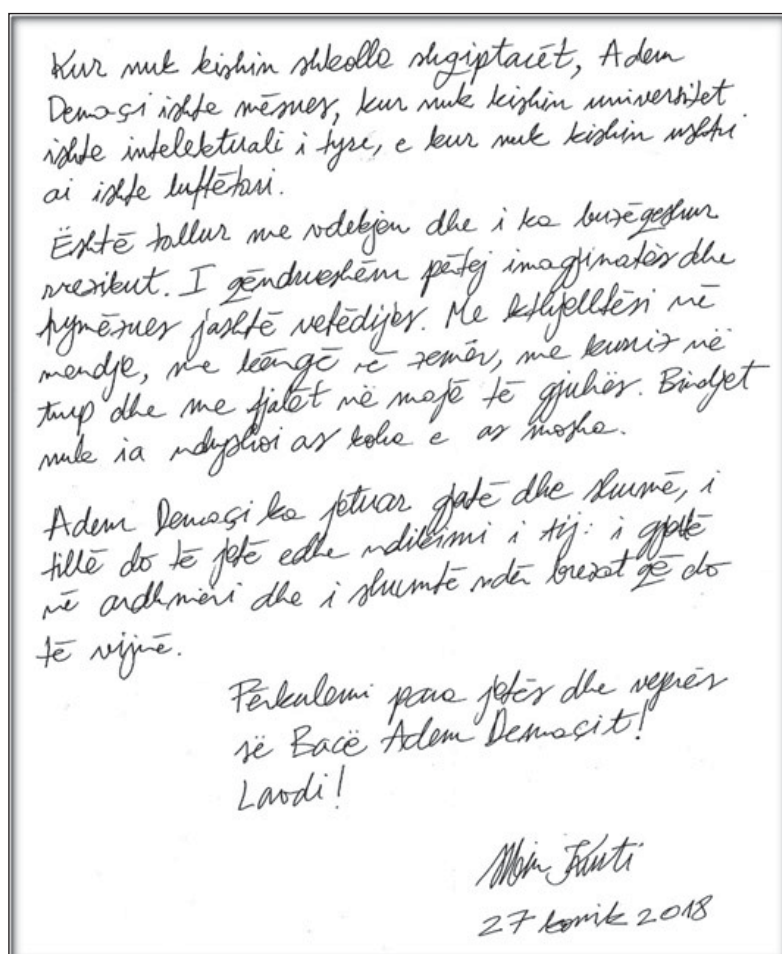 Kur nuk kishin shkolla shqiptarët, Adem
Demaçi ishte mësues, kur nuk kishin universitet
ishte intelektuali i tyre, e kur nuk kishin ushtri
ai ishte luftëtari.
Është tallur me vdekjen dhe i ka buzëqeshur
rrezikut. I qëndrueshëm përtej imagjinatës dhe
frymëzues jashtë vetëdijes. Me kthjelltësi në
mendje, me këngë në zemër, me kurriz në
trup dhe me fjalët në majë të gjuhës. Bindjet
nuk ia ndryshoi as koha e as mosha.
Adem Demaçi ka jetuar gjatë dhe shumë, i
tillë do të jetë edhe ndikimi i tij: i gjatë
në ardhmëri dhe i shumtë ndër brezat që do
të vijnë.
Përkulemi para jetës dhe veprës
së Bacë Adem Demaçit!
Lavdi!
Albin Kurti
27 korrik 2018